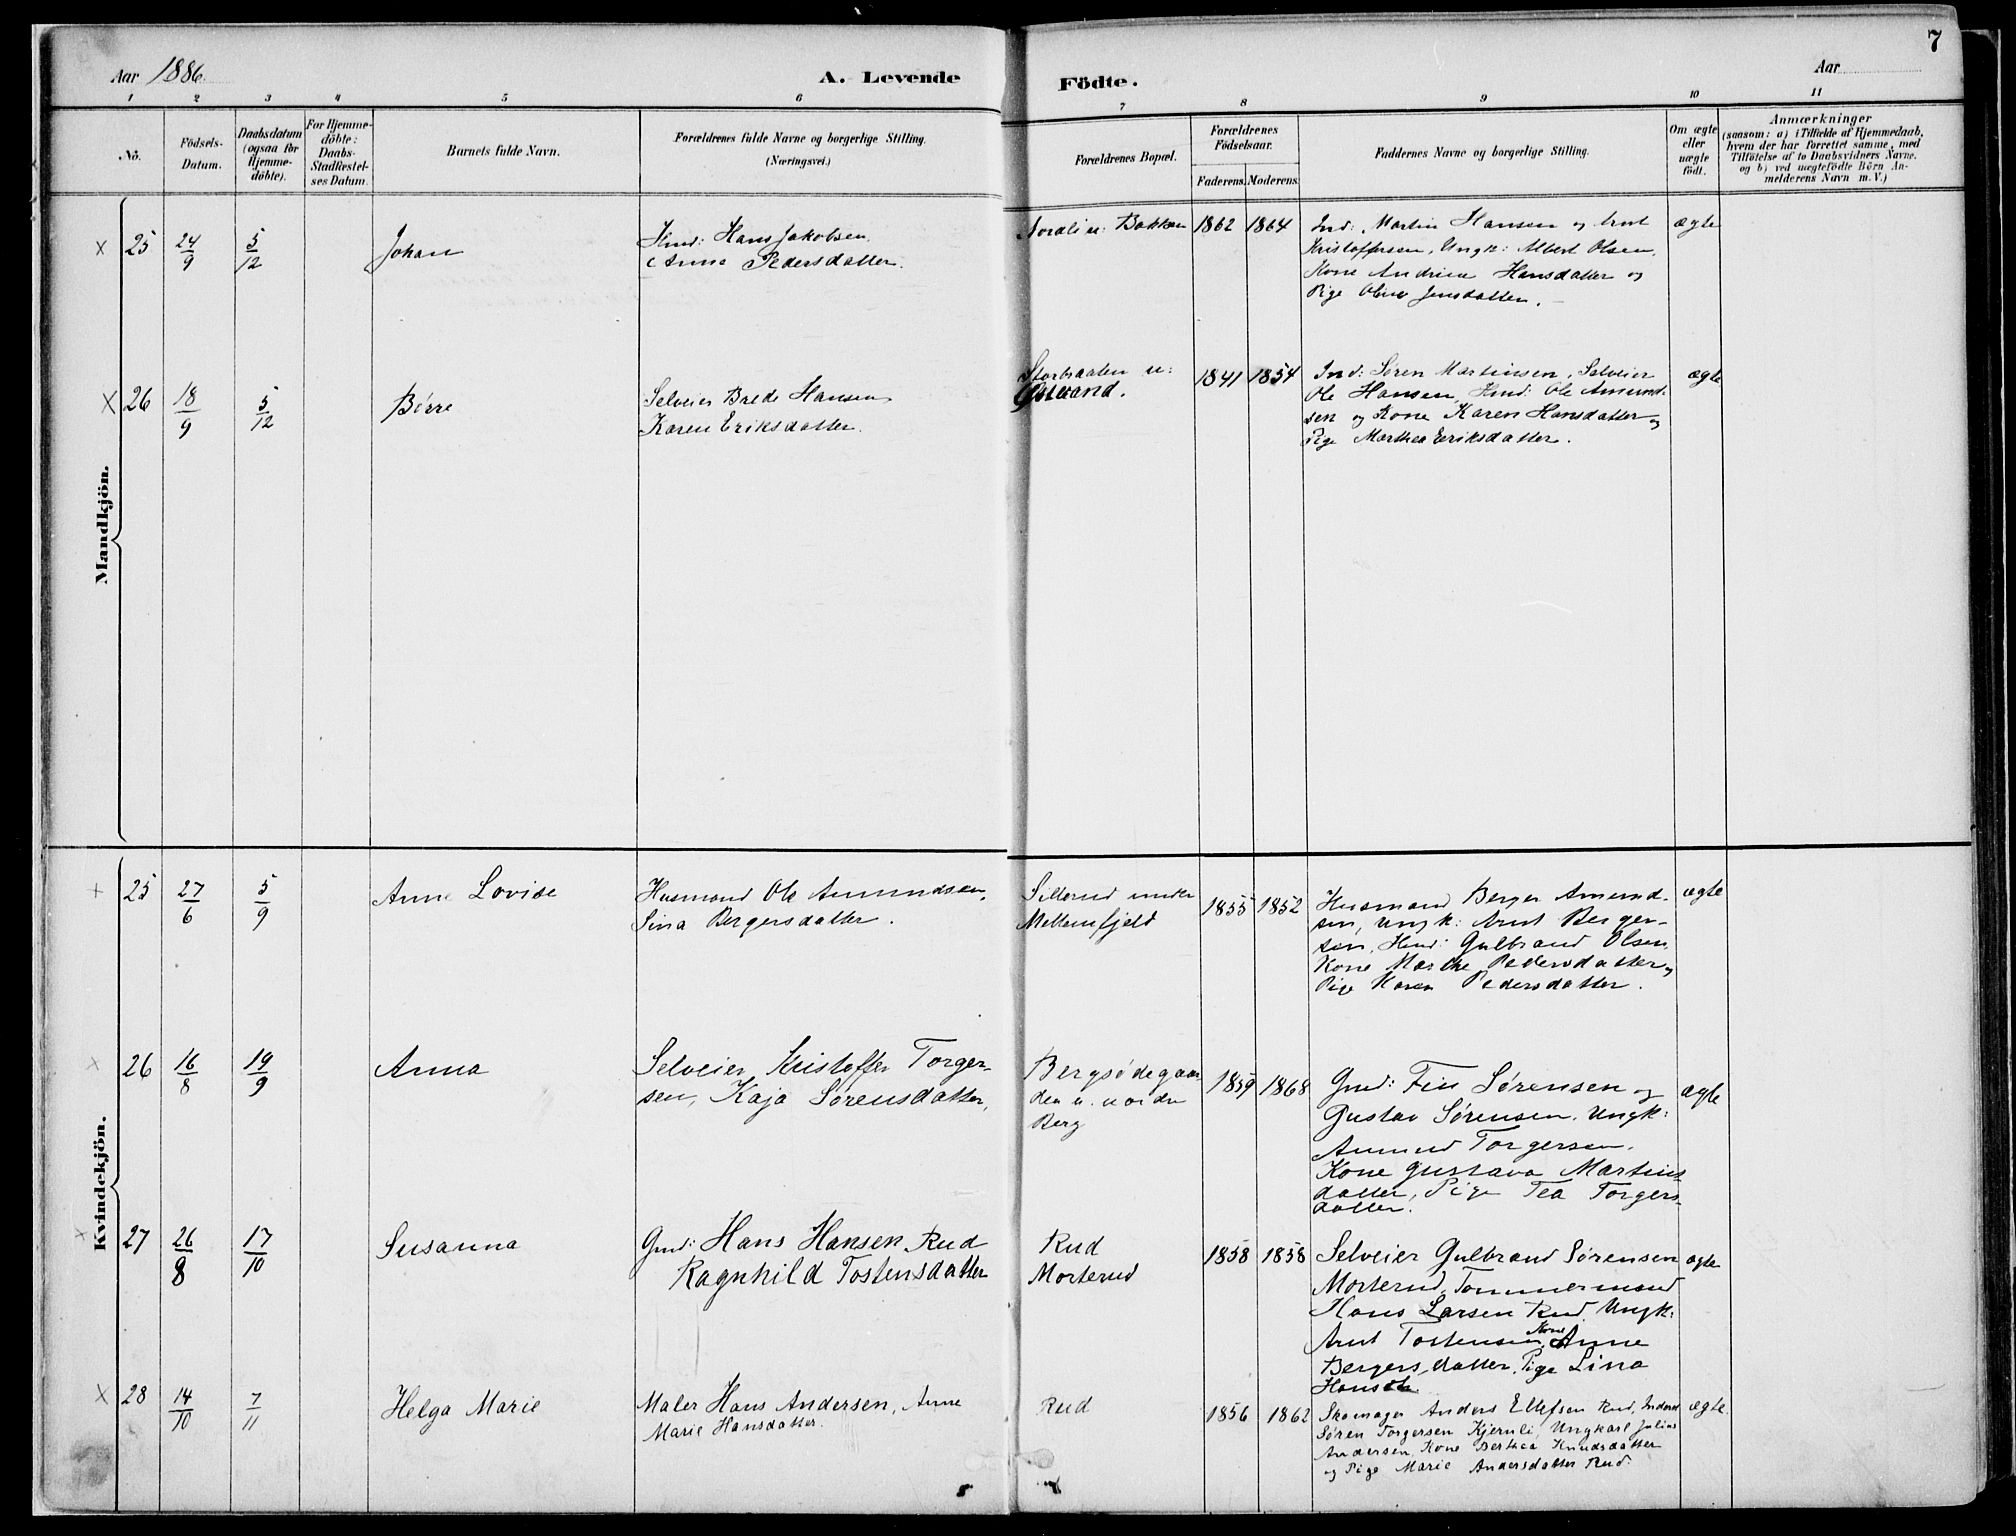 7
Aar 1886.
A. Levende
Födte.
Aar
1 2 3 4 5 6 7 8 9 10 11
No.
Födsels-
Datum.
Daabsdatum
(ogsaa for
Hjemme-
döbte).
For Hjemme-
döbte:
Daabs-
Stadfestel-
ses Datum.
Barnets fulde Navn.
Forældrenes fulde Navne og borgerlige Stilling.
(Næringsvei.)
Forældrenes Bopæl.
Forældrenes
Födselsaar.
Faderens. Moderens.
Faddernes Navne og borgerlige Stilling.
Om ægte
eller
uægte
födt.
Anmærkninger
(saasom: a) i Tilfælde af Hjemmedaab,
hvem der har forrettet samme, med
Tilföielse af to Daabsvidners Navne.
og b) ved uægtefödte Börn An-
melderens Navn m. V.)
Mandkjön.
× 25 24/9 5/12 Johan
Hmd: Hans Jakobsen.
Anne Pedersdatter.
Nordli u: Bakken 1862 1864
Ind: Martin Hansen og Arnt
Kristoffersen, Ungk: Albert Olsen,
Kone Andrine Hansdatter og
Pige Oline Jensdatter.
ægte
× 26 18/9 5/12 Börre
Selveier Brede Hansen
Karen Eriksdatter.
u:
1841 1854
Ind: Sören Martinsen, Selveier
Ole Hansen, Hmd: Ole Amund-
sen og Kone Karen Hansdatter og
Pige Marthea Eriksdatter.
ægte
Kvindekjön.
+ 25 27/6 5/9 Anne Lovise
Husmand Ole Amundsen,
Sina Bergersdatter.
Sillerud under
Mellemfjeld
1855 1852
Husmand Berger Amund-
sen, Ungk: Arnt Berger-
sen, Hmd: Gulbrand Olsen,
Kone Marthe Pedersdatter og
Pige Karen Pedersdatter.
ægte
× 26 16/8 19/9 Anna
Selveier Kristoffer Torger-
sen, Kaja Sörensdatter,
Bergsödegaar
den u. nordre
Berg
1859 1868
Gmd: Fin Sörensen og
Gustav Sörensen, Ungk:
Amund Torgersen.
Kone Gustava Martins-
datter, Pige Tea Torgers-
datter.
ægte
× 27 26/8 17/10 Susanna
Gmd: Hans Hansen Rud
Ragnhild Tostensdatter
Rud
Morterud
1858 1858
Selveier Gulbrand Sörensen
Morterud, Tömmermand
Hans Larsen Rud, Ungk:
Arnt Tostensen, Kone Anne
Bergersdatter, Pige Lina
Hansdtr.
ægte
× 28 14/10 7/11 Helga Marie
Maler Hans Andersen, Anne
Marie Hansdatter.
Rud
1856 1862
Skomager Anders Ellefsen Rud, Inderst
Sören Torgersen Kjernli, Ungkarl Julius
Andersen, Kone Berthea Knudsdatter
og Pige Marie Andersdatter Rud.
ægte.